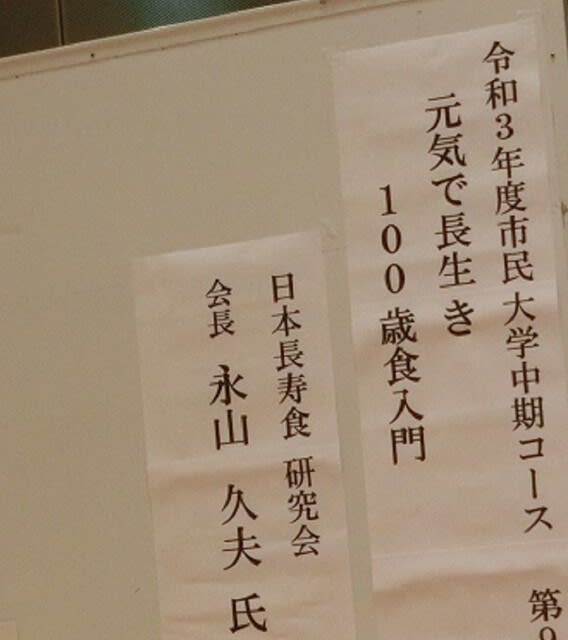 令和3年度市民大学中期コース 第9
元気で長生き
100歳食入門
日本長寿食 研究会
会長 永山 久夫 氏